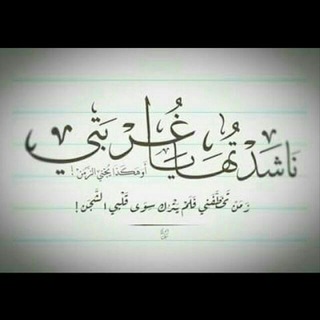 نَاشَدْتُهَا يَا غُرْبَتِي
أَوَهَكَذَا يَجْنِي الزَّمَنْ !
زَمَنٌ تَخَطَّفَنِي فَلَمْ يَتْرُك سِوَى قَلْبِي الشَّجَنْ !